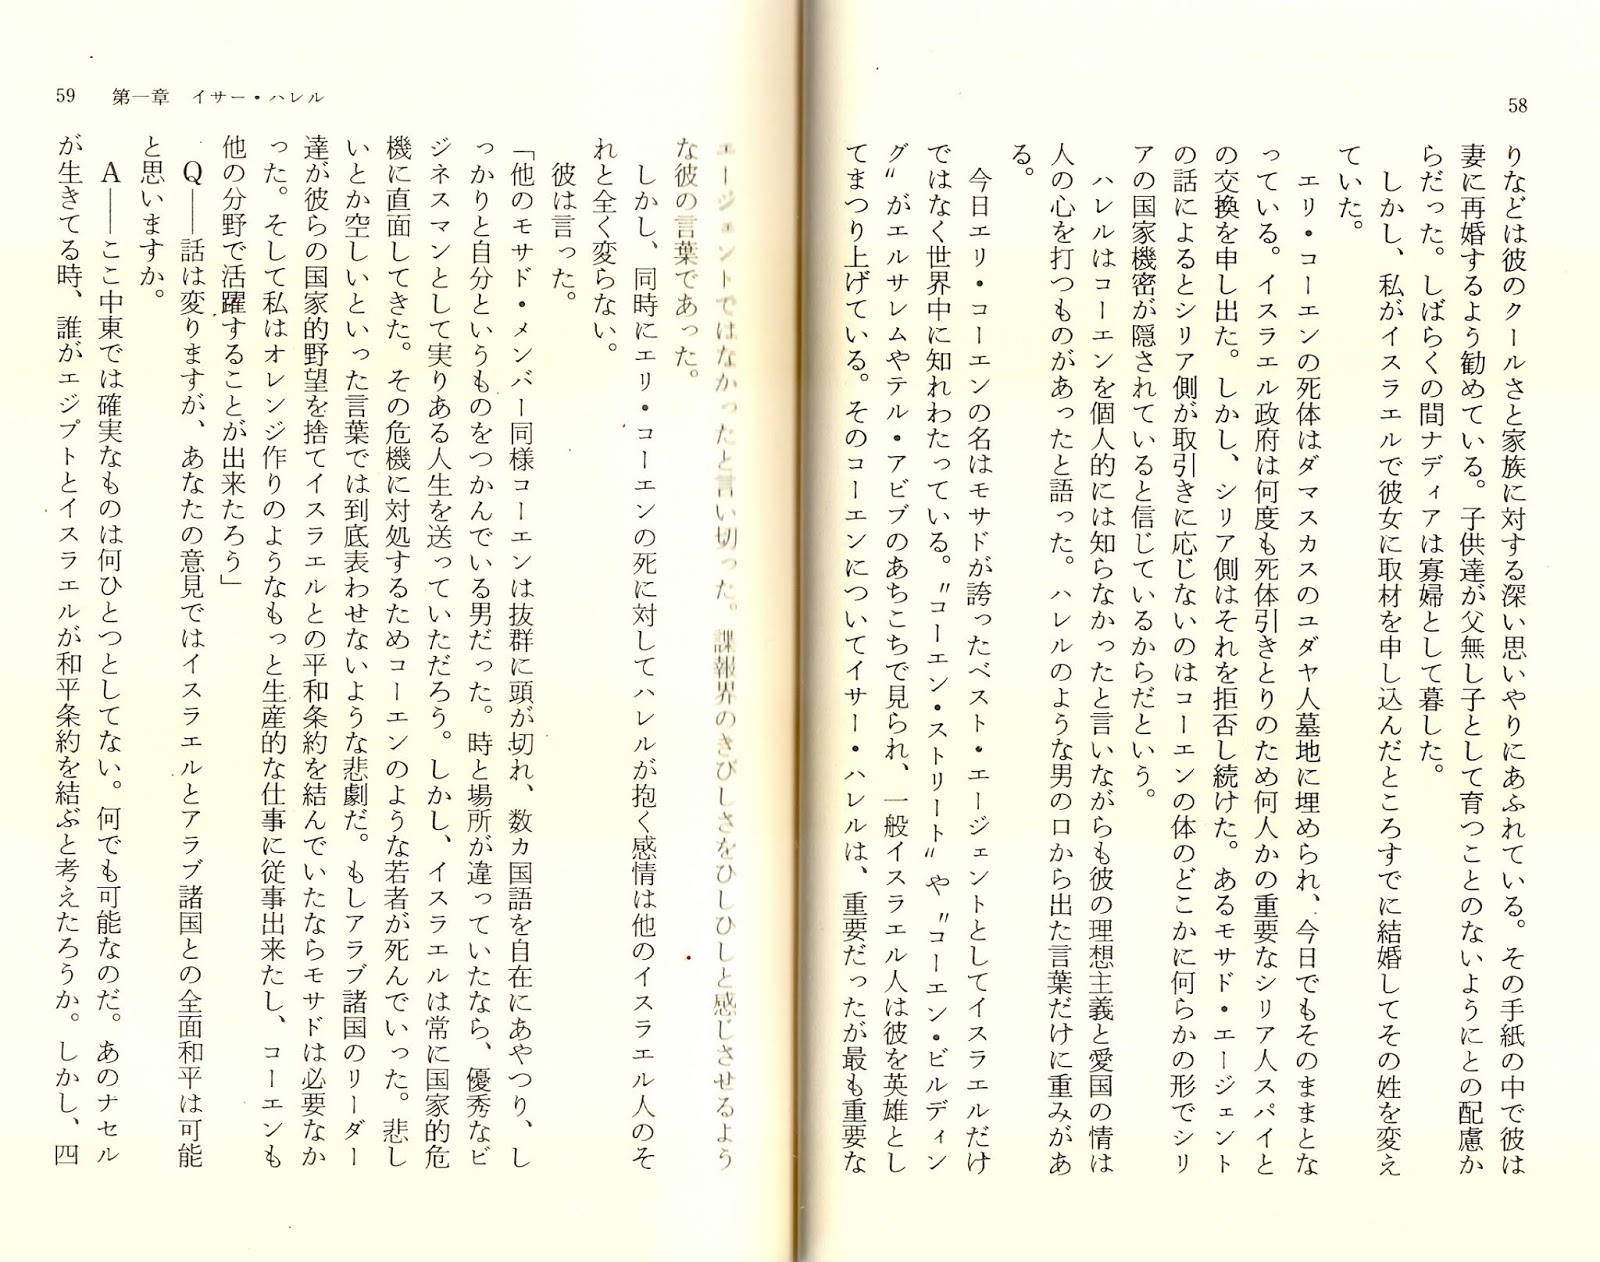 58
りなどは彼のクールさと家族に対する深い思いやりにあふれている。その手紙の中で彼は
妻に再婚するよう勧めている。子供達が父無し子として育つことのないようにとの配慮か
らだった。しばらくの間ナディアは寡婦として暮した。
しかし、私がイスラエルで彼女に取材を申し込んだところすでに結婚してその姓を変え
ていた。
エリ・コーエンの死体はダマスカスのユダヤ人墓地に埋められ、今日でもそのままとな
っている。イスラエル政府は何度も死体引きとりのため何人かの重要なシリア人スパイと
の交換を申し出た。しかし、シリア側はそれを拒否し続けた。あるモサド・エージェント
の話によるとシリア側が取引きに応じないのはコーエンの体のどこかに何らかの形でシリ
アの国家機密が隠されていると信じているからだという。
ハレルはコーエンを個人的には知らなかったと言いながらも彼の理想主義と愛国の情は
人の心を打つものがあったと語った。ハレルのような男の口から出た言葉だけに重みがあ
る。
今日エリ・コーエンの名はモサドが誇ったベスト・エージェントとしてイスラエルだけ
ではなく世界中に知れわたっている。〝コーエン・ストリート〟や〝コーエン・ビルディン
グ〟がエルサレムやテル・アビブのあちこちで見られ、一般イスラエル人は彼を英雄とし
てまつり上げている。そのコーエンについてイサー・ハレルは、重要だったが最も重要な
59 第一章 イサー・ハレル
エージェントではなかったと言い切った。諜報界のきびしさをひしひしと感じさせるよう
な彼の言葉であった。
しかし、同時にエリ・コーエンの死に対してハレルが抱く感情は他のイスラエル人のそ
れと全く変らない。
彼は言った。
「他のモサド・メンバー同様コーエンは抜群に頭が切れ、数カ国語を自在にあやつり、し
っかりと自分というものをつかんでいる男だった。時と場所が違っていたなら、優秀なビ
ジネスマンとして実りある人生を送っていただろう。しかし、イスラエルは常に国家的危
機に直面してきた。その危機に対処するためコーエンのような若者が死んでいった。悲し
いとか空しいといった言葉では到底表わせないような悲劇だ。もしアラブ諸国のリーダー
達が彼らの国家的野望を捨てイスラエルとの平和条約を結んでいたならモサドは必要なか
った。そして私はオレンジ作りのようなもっと生産的な仕事に従事出来たし、コーエンも
他の分野で活躍することが出来たろう」
Q――話は変りますが、あなたの意見ではイスラエルとアラブ諸国との全面和平は可能
と思いますか。
A――ここ中東では確実なものは何ひとつとしてない。何でも可能なのだ。あのナセル
が生きてる時、誰がエジプトとイスラエルが和平条約を結ぶと考えたろうか。しかし、四